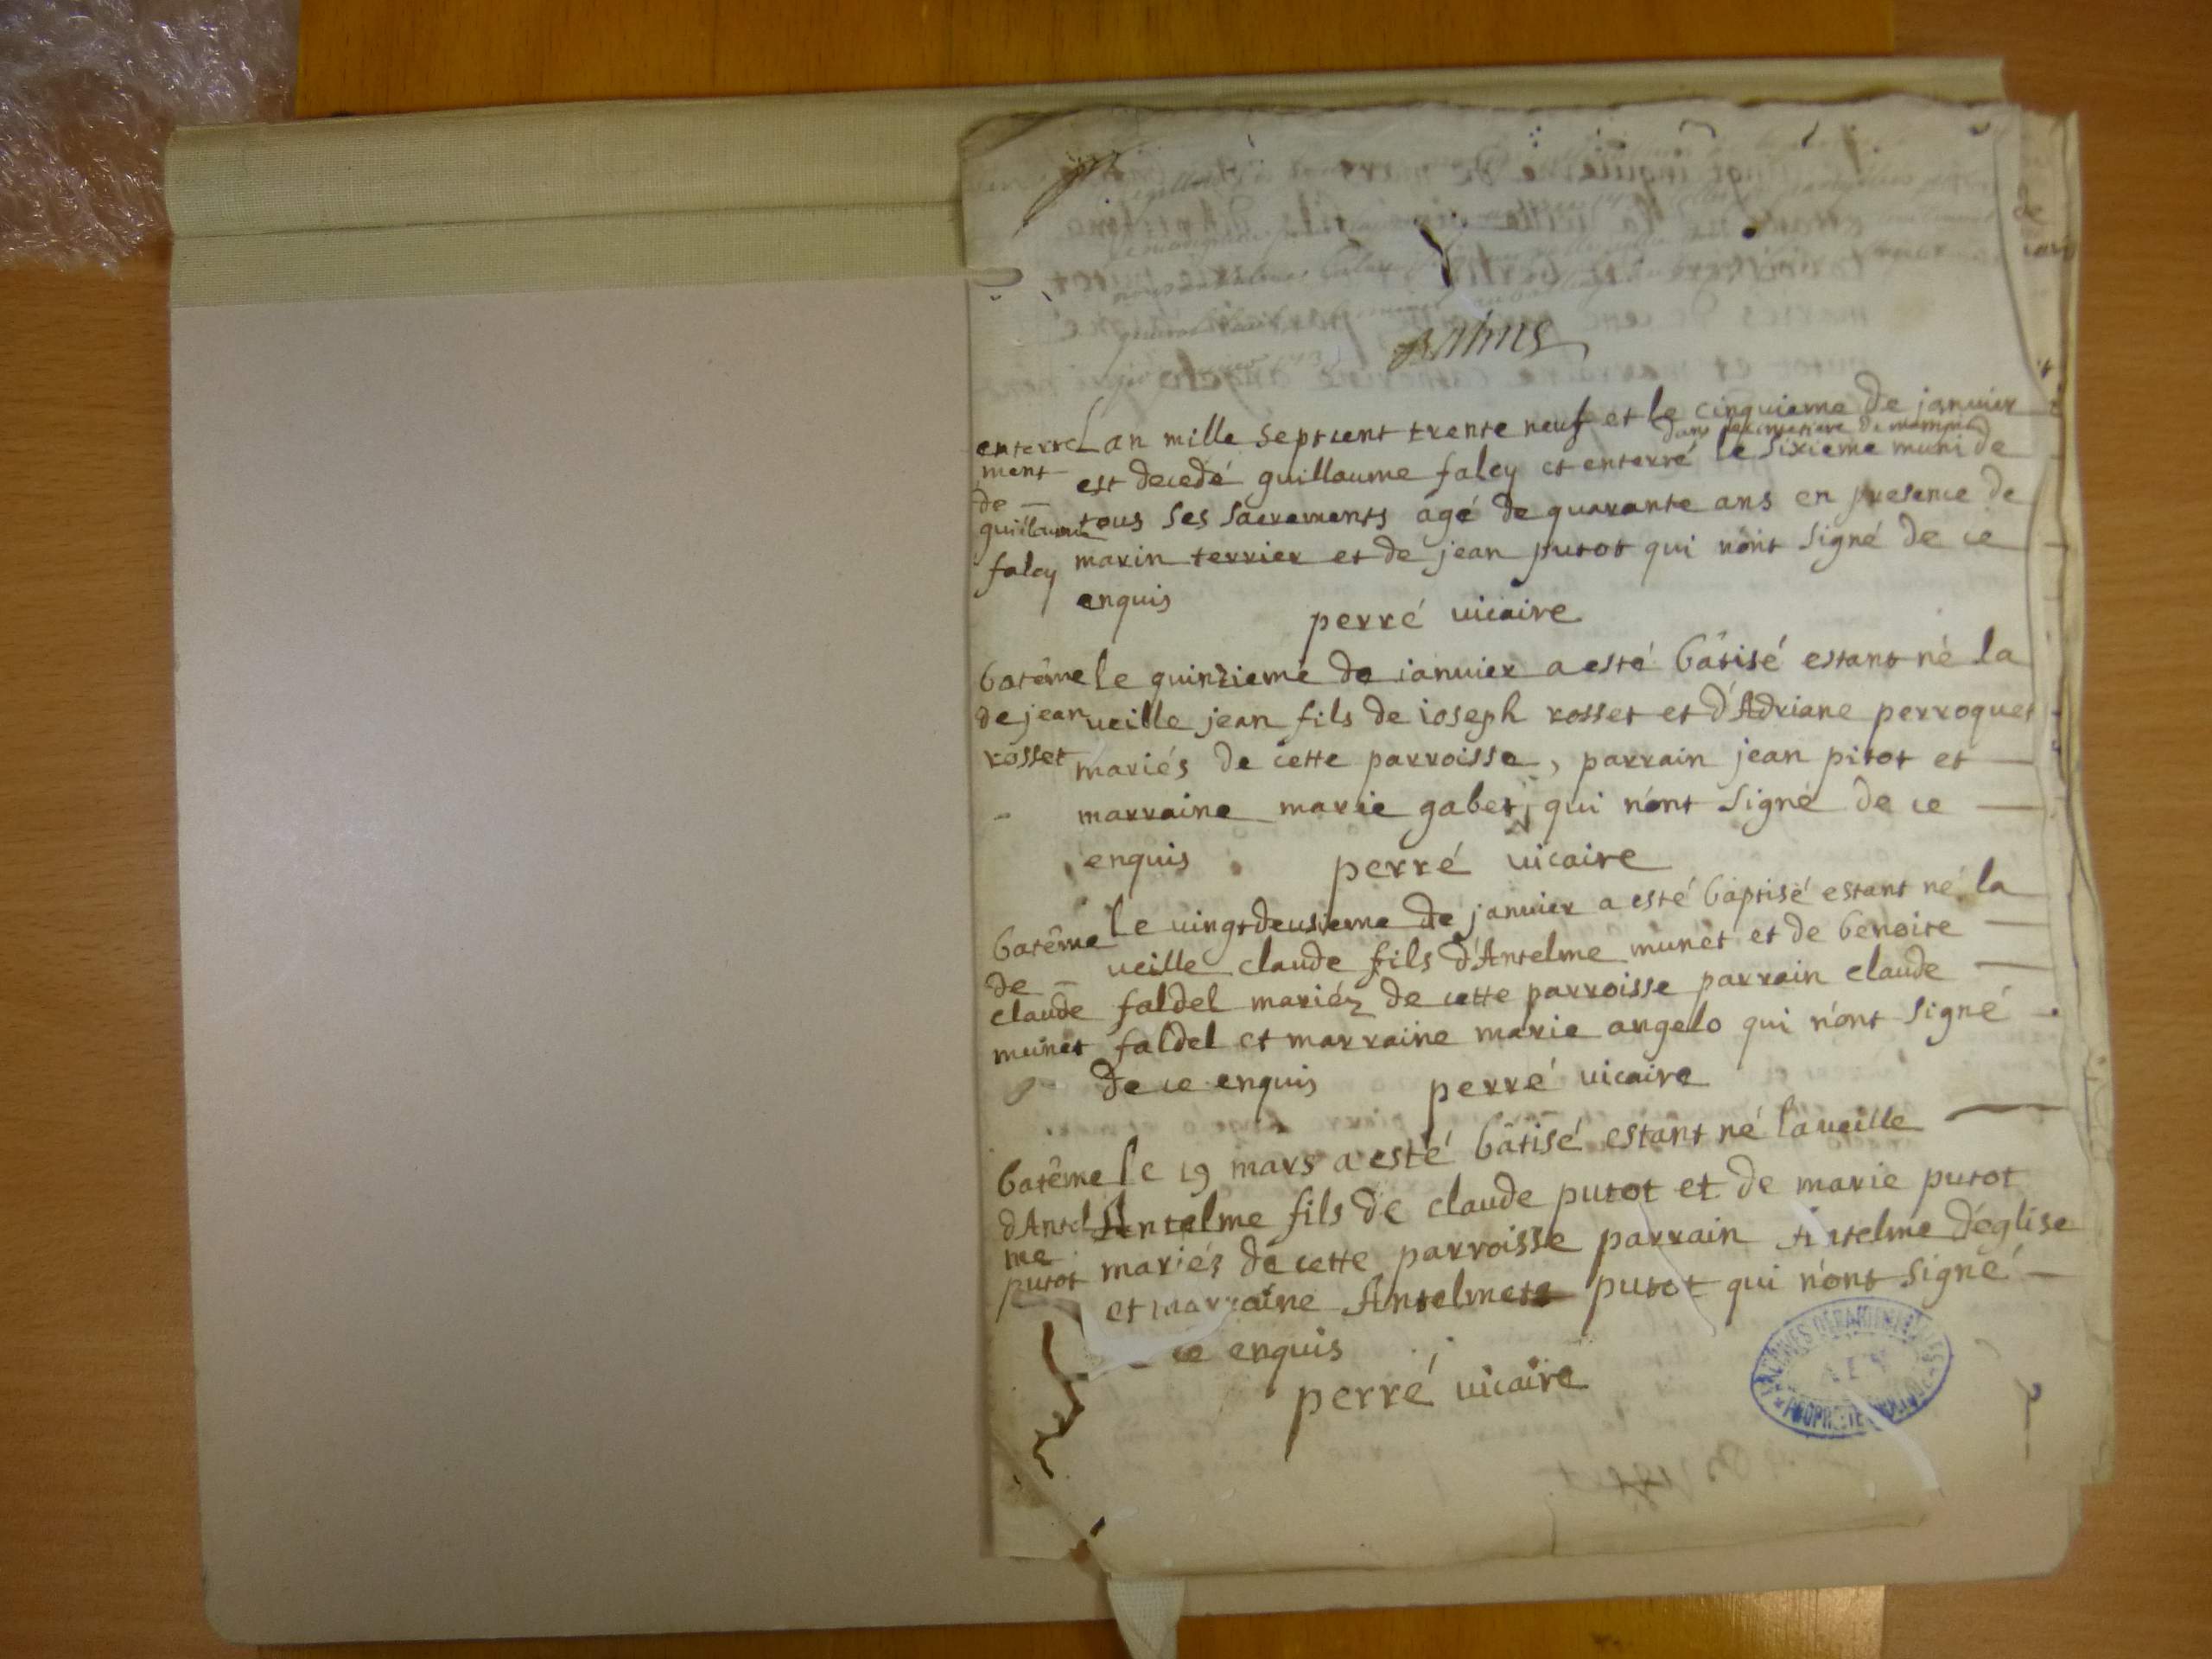 enterre
ment
de
guillaume
falcy
L an mille Septcent trente neuf et le cinquieme de januier
dans le cimetiere de
est decedé guillaume falcy et enterré le Sixieme muni de
tous Ses Sacrements agé de quarante ans en presence de
marin terrier et de jean putot qui n'ont Signé de ce
enquis
perré uicaire
batême
de jean
rosset
le quinzieme de ianuier a esté bâtisé estant né la
ueille jean fils de ioseph rosset et d'Adriane perroquet
mariés de cette parroisse, parrain jean pitot et
marraine marie gabet, qui n'ont Signé de ce
enquis perré uicaire
batême
de
claude
munet
le uingtdeusieme de januier a esté baptisé estant né la
ueille claude fils d'Antelme munet et de benoite
faldel mariéz de cette parroisse parrain claude
faldel et marraine marie angelo qui n'ont Signé
de ce enquis perré uicaire
batême
d'Antel
me
putot
le 19 mars a esté bâtisé estant né la ueille
Antelme fils de claude putot et de marie putot
mariéz de cette parroisse parrain Antelme d'église
et marraine Antelmete putot qui n'ont Signé
ce enquis
perré uicaire
ARCHIVES DÉPARTEMENTALES
PROPRIÉTÉ PUBLIQUE
de